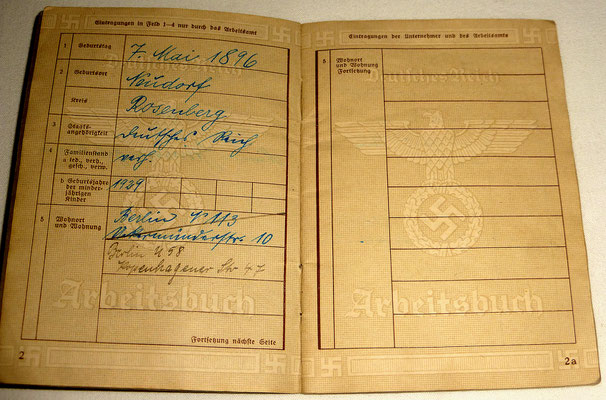 Eintragungen in Feld 1–4 nur durch das Arbeitsamt
1 Geburtstag 7. Mai 1896
2 Geburtsort Neudorf
Kreis Rosenberg
3 Staats-
angehörigkeit Deutsches Reich
4 Familienstand
a led., verh.,
gesch., verw. verh.
b Geburtsjahre
der minder-
jährigen
Kinder 1929
5 Wohnort
und Wohnung Berlin N 113
Ueckermünderstr. 10
Berlin N 58
Kopenhagener Str 47
Arbeitsbuch
Fortsetzung nächste Seite
2
Eintragungen der Unternehmer und des Arbeitsamts
5 Wohnort
und Wohnung
Fortsetzung
Deutsches Reich
Arbeitsbuch
2a